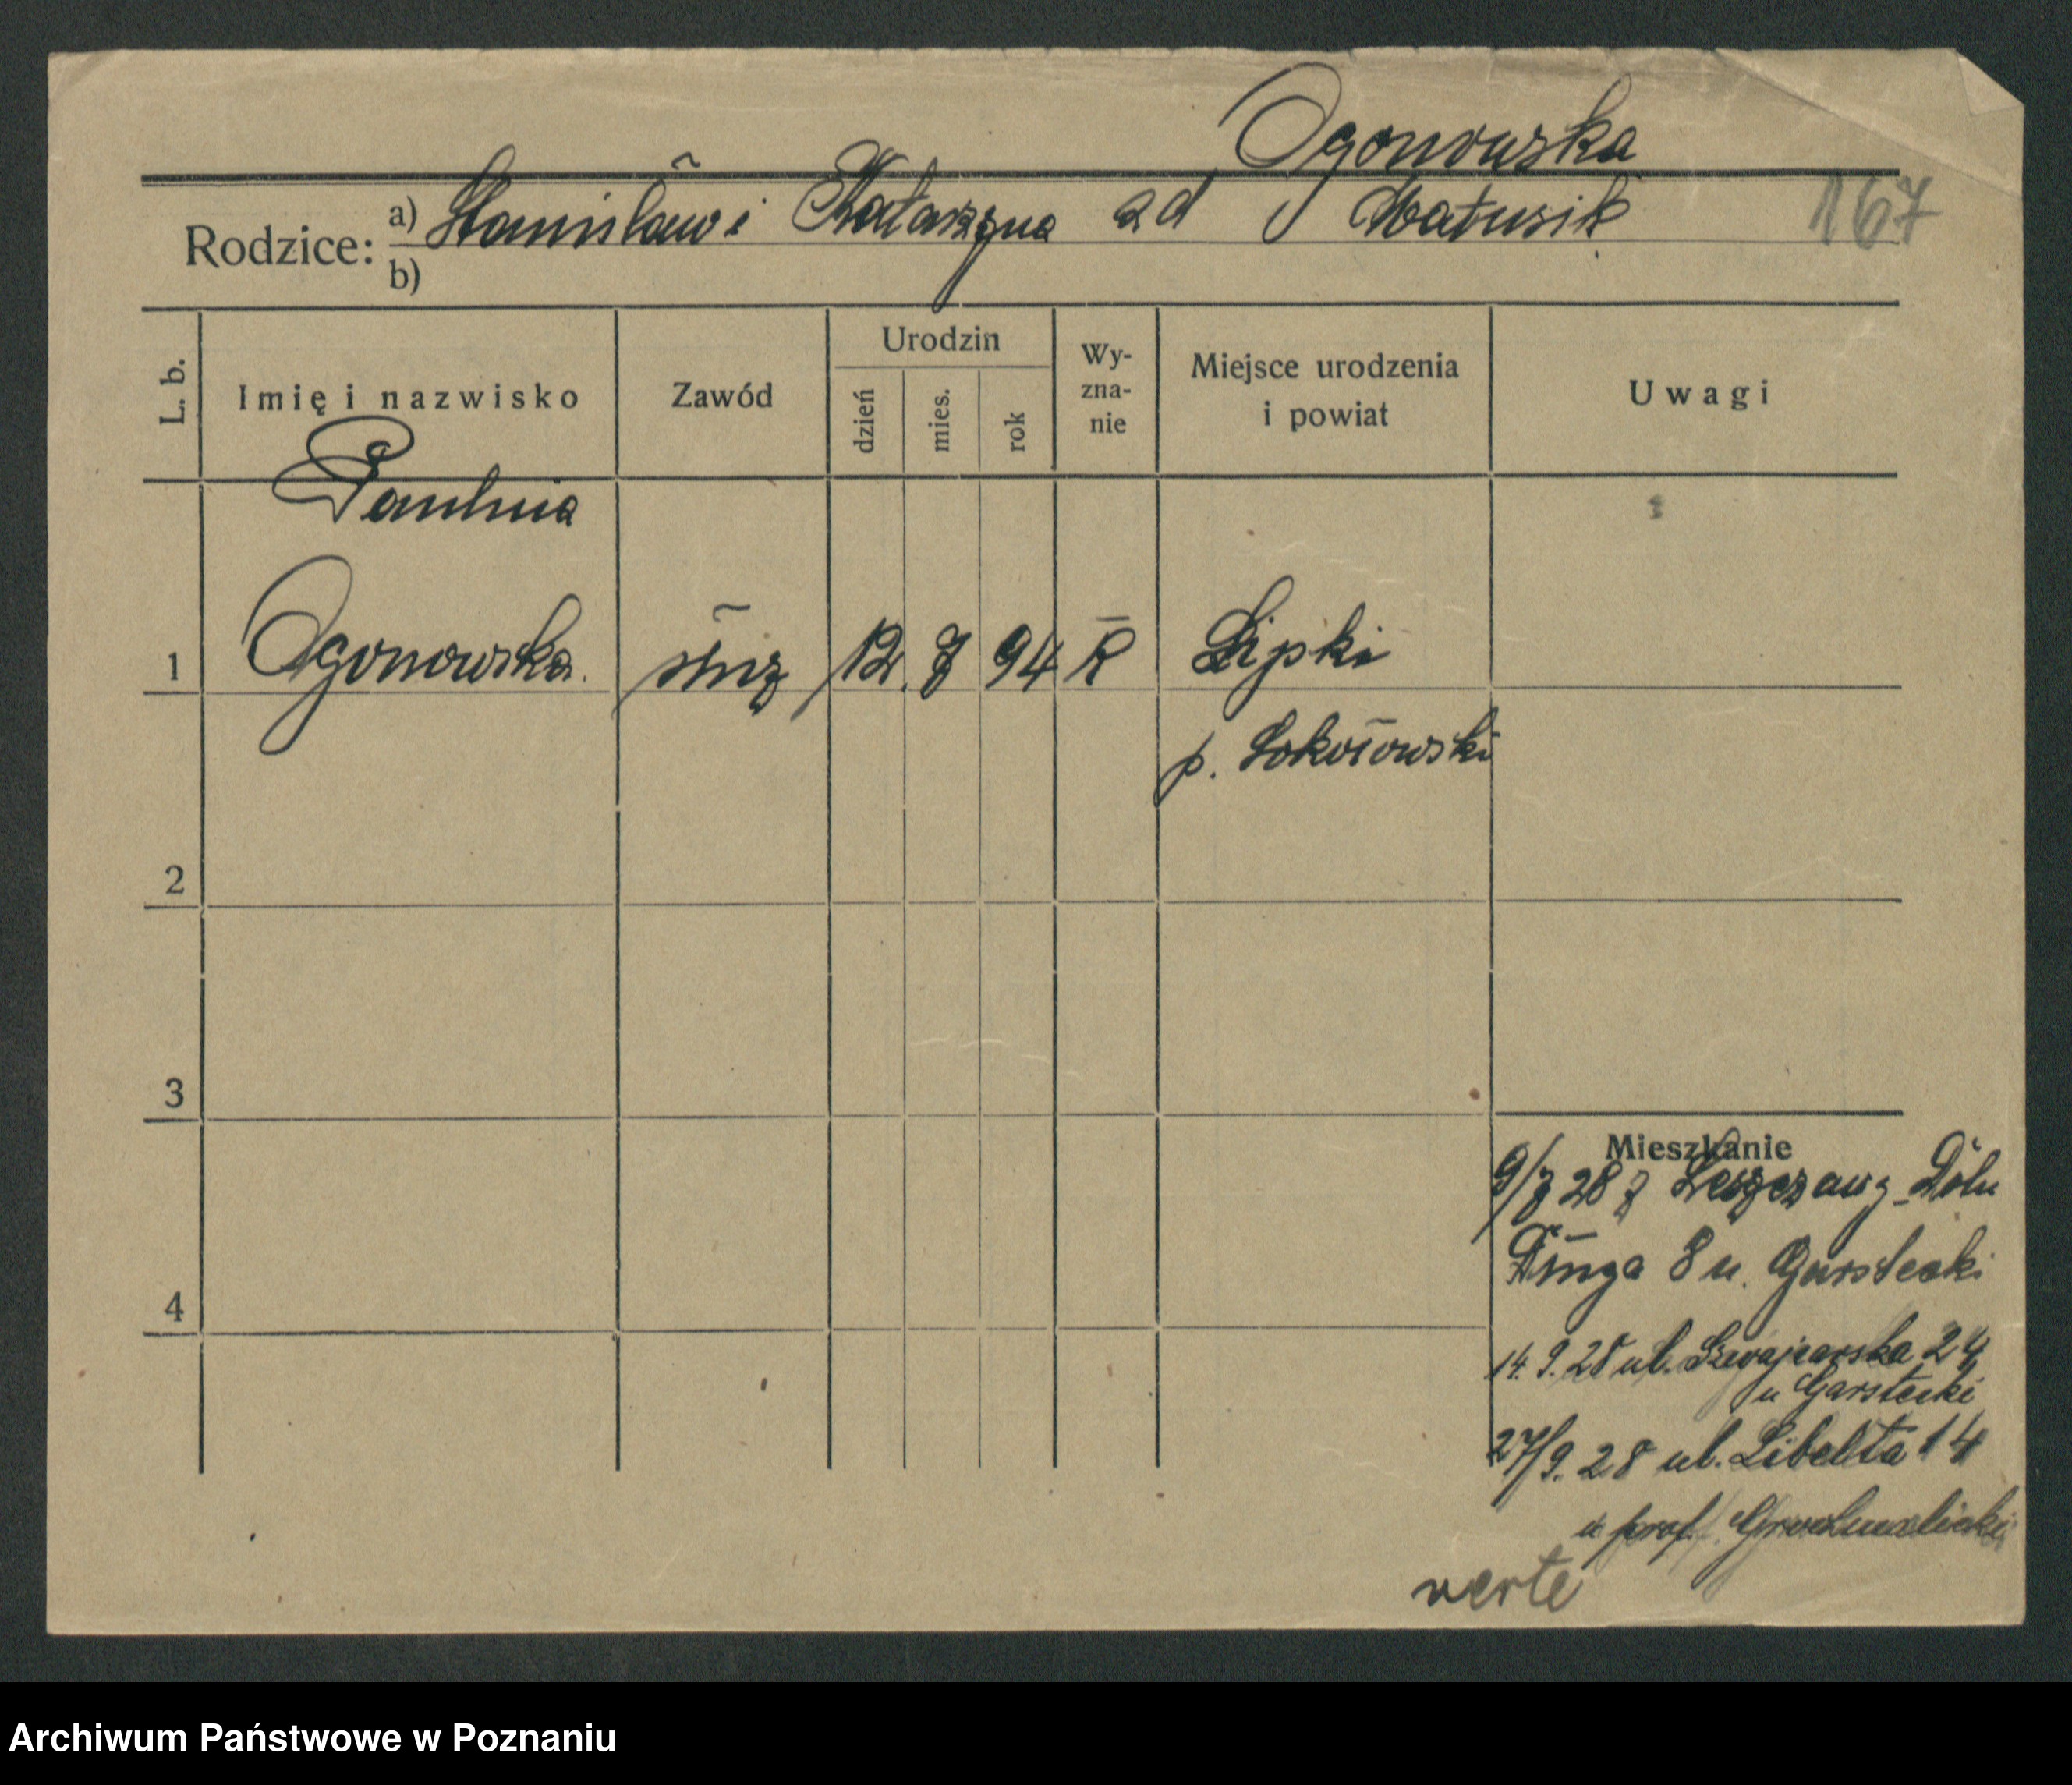 Ogonowska
Rodzice: a) Stanisław i Katarzyna zd Matusik
b)
167
L. b. Imię i nazwisko Zawód Urodzin dzień mies. rok Wy-zna-nie Miejsce urodzenia i powiat Uwagi
Paulina
1 Ogonowska. służ 12. 7 94 R Lipki
p. Sokołowski
2
3
Mieszkanie
9/7 28 z
Długa 8 u. Garstecki
4
14. 9. 28 ul. Szwajcarska 24
u Garstecki
27/9. 28 ul. Libelta 14
u prof. Grochmalicki
verte
Archiwum Państwowe w Poznaniu